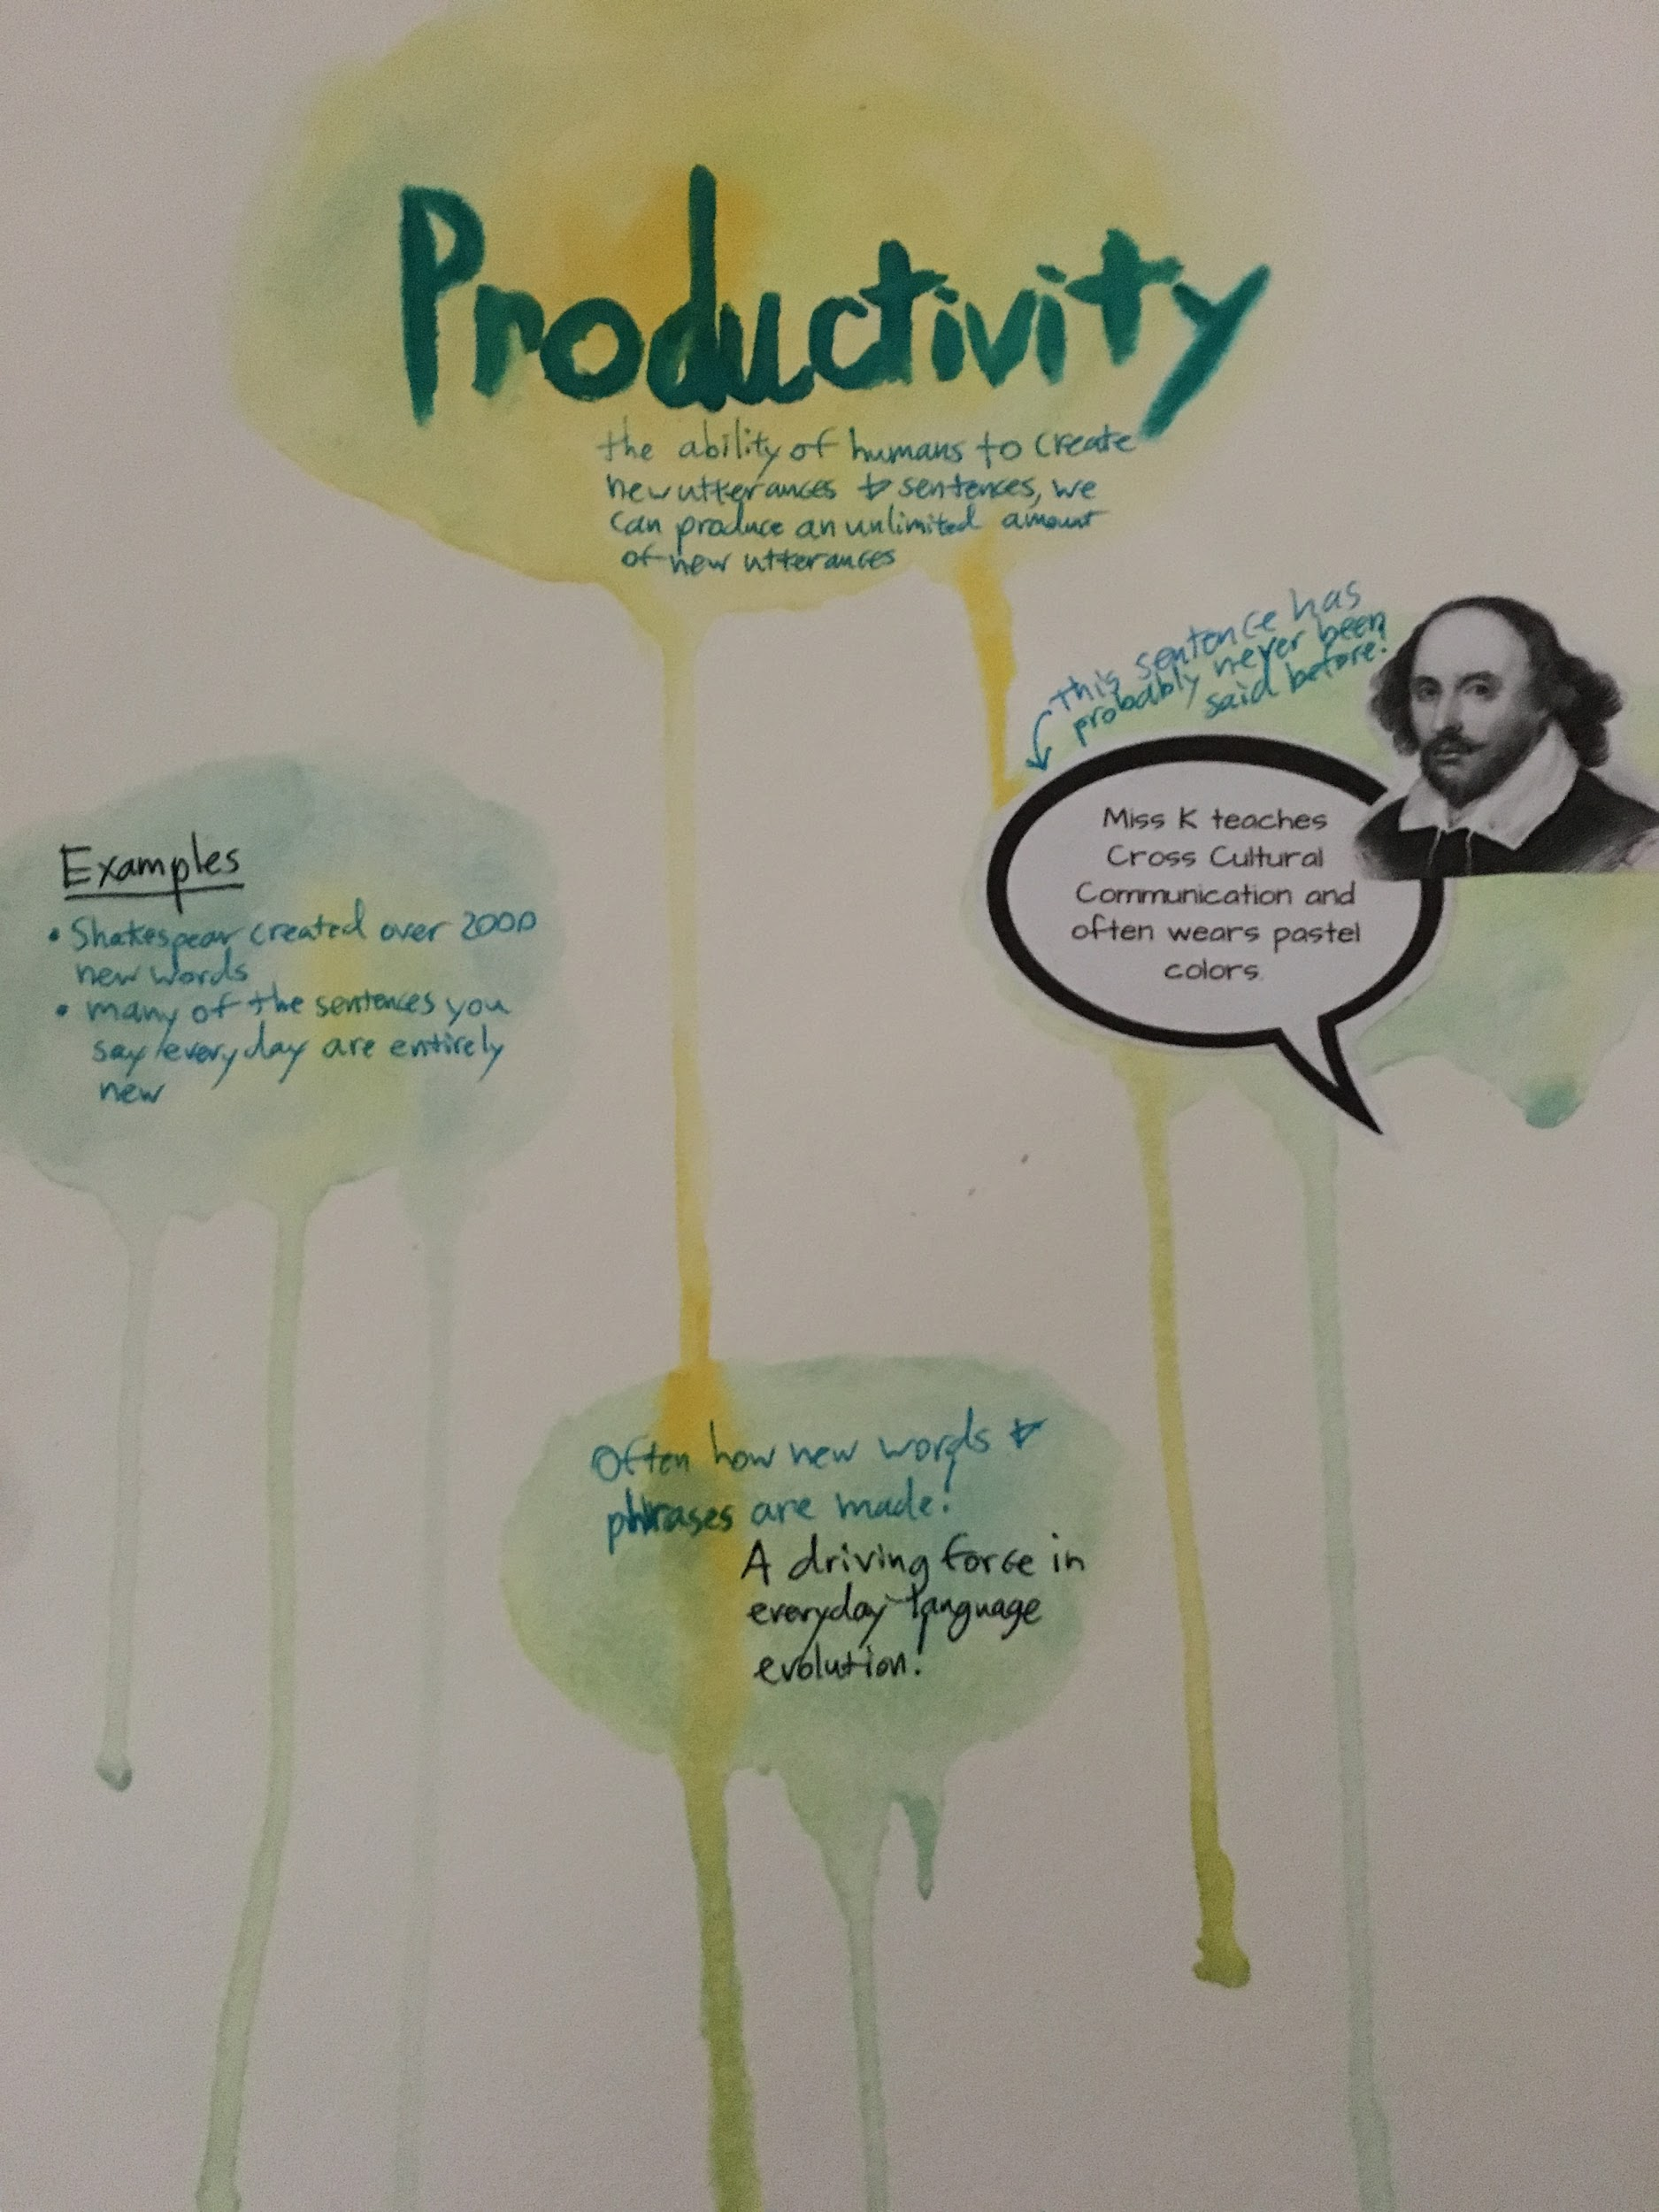 Productivity
the ability of humans to create
new utterances & sentences, we
can produce an unlimited amount
of new utterances
this sentence has
probably never been
said before!
Miss K teaches
Cross Cultural
Communication and
often wears pastel
colors.
Examples
• Shakespear created over 2000
new words
• many of the sentences you
say everyday are entirely
new
Often how new words &
phrases are made!
A driving force in
everyday language
evolution!